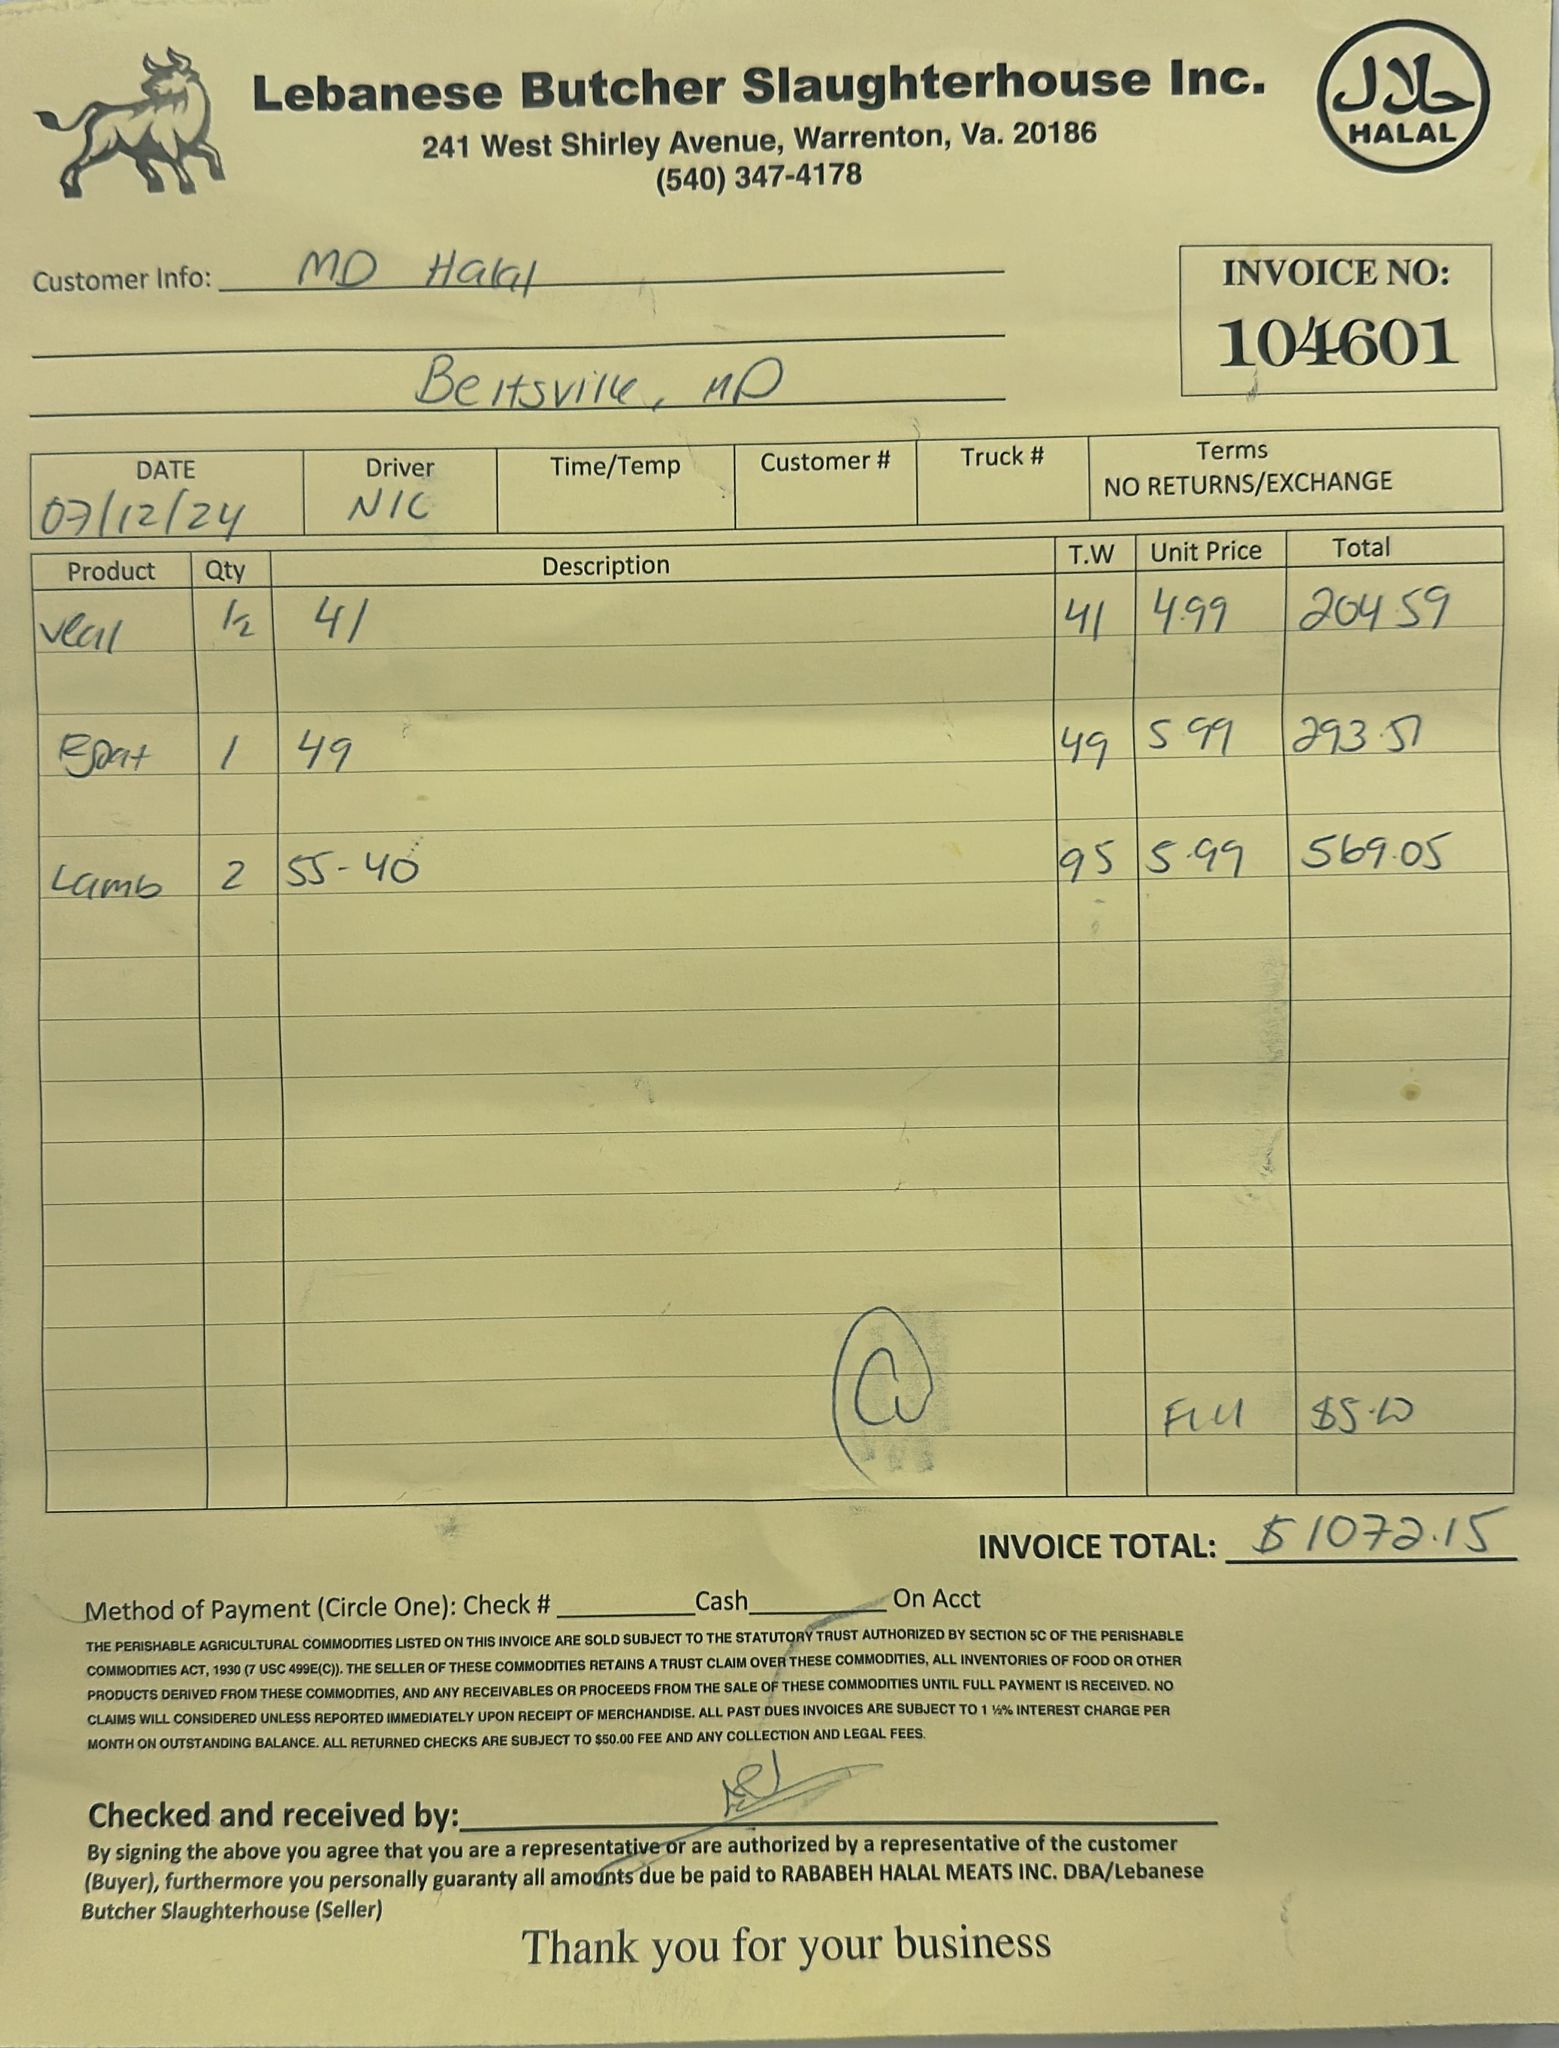 Lebanese Butcher Slaughterhouse Inc.
حلال
HALAL
241 West Shirley Avenue, Warrenton, Va. 20186
(540) 347-4178
Customer Info: MD Halal
INVOICE NO:
104601
Beltsville, MD
DATE Driver Time/Temp Customer # Truck # Terms
07/12/24 NIC NO RETURNS/EXCHANGE
Product Qty Description T.W Unit Price Total
Veal 1/2 41 41 4.99 204.59
Goat 1 49 49 5.99 293.51
Lamb 2 55-40 95 5.99 569.05
$5.00
INVOICE TOTAL: $1072.15
Method of Payment (Circle One): Check # Cash On Acct
THE PERISHABLE AGRICULTURAL COMMODITIES LISTED ON THIS INVOICE ARE SOLD SUBJECT TO THE STATUTORY TRUST AUTHORIZED BY SECTION 5C OF THE PERISHABLE
COMMODITIES ACT, 1930 (7 USC 499E(C)). THE SELLER OF THESE COMMODITIES RETAINS A TRUST CLAIM OVER THESE COMMODITIES, ALL INVENTORIES OF FOOD OR OTHER
PRODUCTS DERIVED FROM THESE COMMODITIES, AND ANY RECEIVABLES OR PROCEEDS FROM THE SALE OF THESE COMMODITIES UNTIL FULL PAYMENT IS RECEIVED. NO
CLAIMS WILL CONSIDERED UNLESS REPORTED IMMEDIATELY UPON RECEIPT OF MERCHANDISE. ALL PAST DUES INVOICES ARE SUBJECT TO 1 ½% INTEREST CHARGE PER
MONTH ON OUTSTANDING BALANCE. ALL RETURNED CHECKS ARE SUBJECT TO $50.00 FEE AND ANY COLLECTION AND LEGAL FEES.
Checked and received by:
By signing the above you agree that you are a representative or are authorized by a representative of the customer
(Buyer), furthermore you personally guaranty all amounts due be paid to RABABEH HALAL MEATS INC. DBA/Lebanese
Butcher Slaughterhouse (Seller)
Thank you for your business